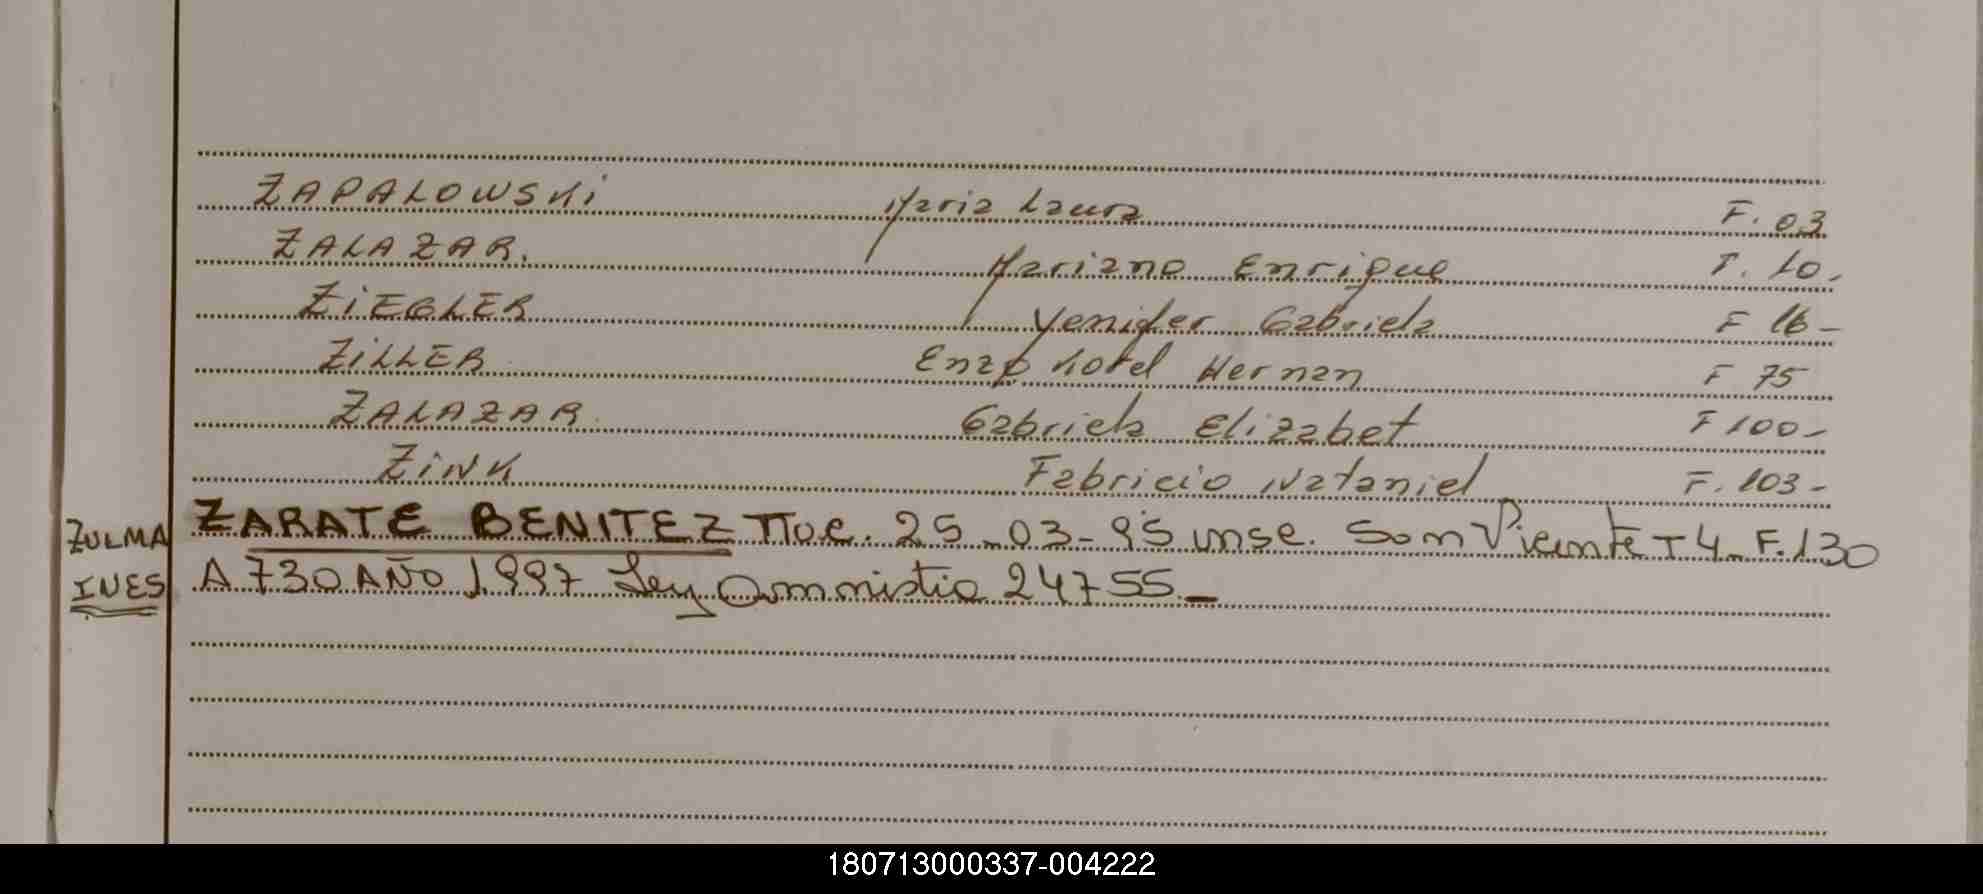 ZAPALOWSKi Maria Laura F. 03
ZALAZAR. Mariano Enrique F. 10.
ZiEGLER Yenifer Gabriela F 16-
ZiLLER Enzo Hernan F 75
ZALAZAR. Gabriela Elizabet F 100-
ZiNK Fabricio Nataniel F. 103-
ZULMA INES
ZARATE BENITEZ Nac. 25-03-95 insc. San Vicente T 4. F.130
A.730 AÑO 1.997 Ley amnistia 24755.-
180713000337-004222